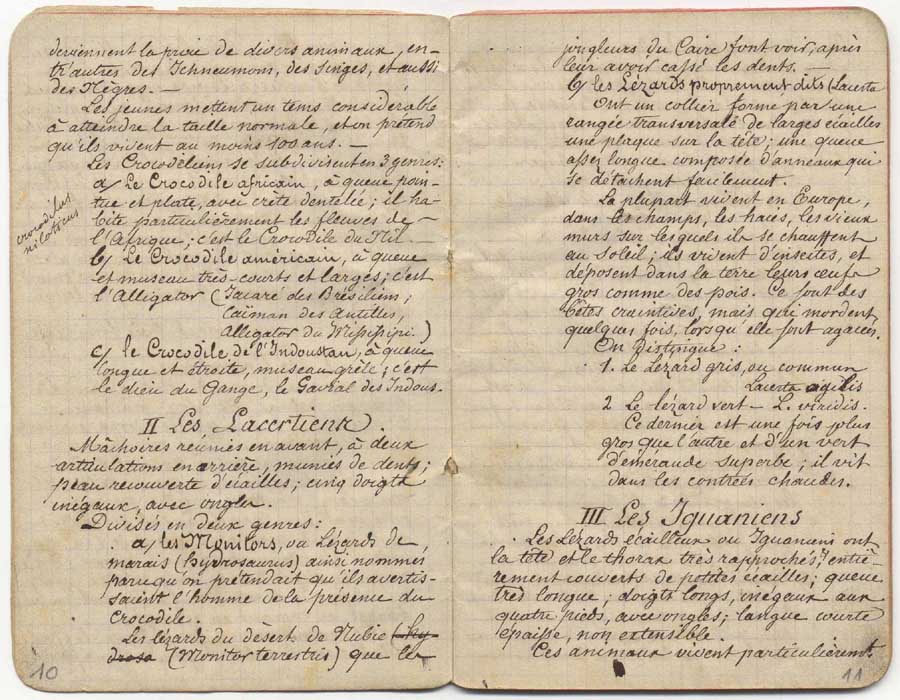 deviennent la proie de divers animaux, en-
tr'autres des Ichneumons, des singes, et aussi
des Nègres. —
Les jeunes mettent un tems considérable
à atteindre la taille normale, et on prétend
qu'ils vivent au moins 100 ans. —
Les Crocodéliens se subdivisent en 3 genres:
a/ Le Crocodile africain, à queue poin-
tue et plate, avec crête dentelée; il ha-
bite particulièrement les fleuves de
l'Afrique; c'est le Crocodile du Nil. —
crocodilus
niloticus
b/ Le Crocodile américain, à queue
et museau très-courts et larges; c'est
l'Alligator (Jacaré des Brésiliens;
Caïman des Antilles,
Alligator du Missisipi.)
c/ le Crocodile de l'Indoustan, à queue
longue et étroite, museau grêle; c'est
le dieu du Gange, le Gavial des Indous.
II Les Lacertiens.
Mâchoires réunies en avant, à deux
articulations en arrière, munies de dents;
peau recouverte d'écailles; cinq doigts
inégaux, avec ongles.
Divisés en deux genres:
a/ les Monitors, ou Lézards de
marais (hydrosaurus) ainsi nommés
parcequ'on prétendait qu'ils avertis-
saient l'homme de la présence du
Crocodile.
Les lézards du désert de Nubie (hy
drosa (Monitor terrestris) que les
10
jongleurs du Caire font voir, après
leur avoir cassé les dents. —
b/ les Lézards proprement dits (Lacerta
Ont un collier formé par une
rangée transversale de larges écailles
une plaque sur la tête; une queue
assez longue composée d'anneaux qui
se détachent facilement.
La plupart vivent en Europe,
dans les champs, les haies, les vieux
murs sur lesquels ils se chauffent
au soleil; ils vivent d'insectes, et
déposent dans la terre leurs œufs
gros comme des pois. Ce sont des
bêtes craintives, mais qui mordent,
quelques fois, lorsqu'elle sont agacées.
On distingue:
1. Le lézard gris, ou commun
Lacerta agilis
2 Le lézard vert — L. viridis.
Ce dernier est une fois plus
gros que l'autre et d'un vert
d'émeraude superbe; il vit
dans les contrées chaudes.
III Les Iguaniens
Les Lézards écailleux ou Iguaniens ont
la tête et le thorax très rapprochés, entiè-
rement couverts de petites écailles; queue
très longue; doigts longs, inégaux aux
quatre pieds, avec ongles; langue courte
épaisse, non extensible.
Ces animaux vivent particulièremt
11